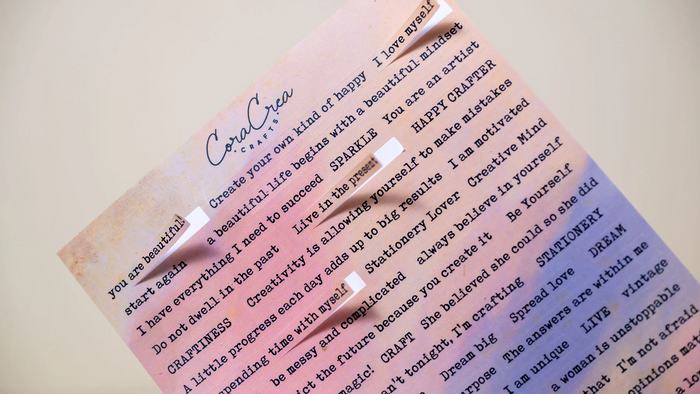 CoraCrea
CRAFTS
you are beautiful Create your own kind of happy I love myself
start again a beautiful life begins with a beautiful mindset
I have everything I need to succeed SPARKLE You are an artist
Do not dwell in the past Live in the present HAPPY CRAFTER
CRAFTINESS Creativity is allowing yourself to make mistakes
A little progress each day adds up to big results I am motivated
spending time with myself Stationery Lover Creative Mind
be messy and complicated always believe in yourself
the future because you create it Be Yourself
magic! CRAFT She believed she could so she did
tonight, I'm crafting STATIONERY
Dream big Spread love DREAM
The answers are within me
I am unique LIVE vintage
a woman is unstoppable
that I'm not afraid
opinions